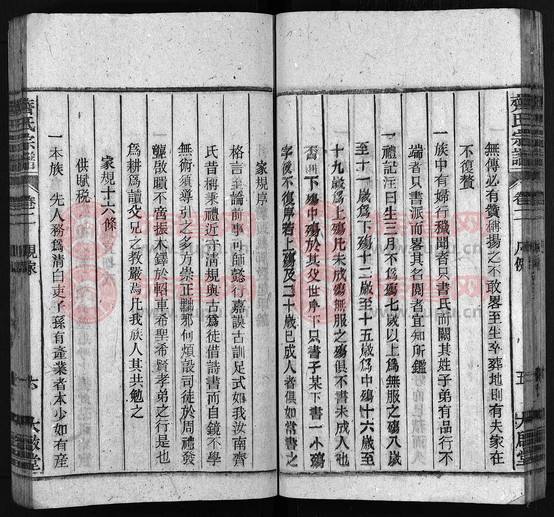 齊氏宗譜
卷二
凡例
五
大啟堂
無傳必有贊稱揚之不敢畧至生卒葬地則有夫家在
不復贅
一族中有婦行穢聞者只書氏而闕其姓子弟有品行不
端者只書派而畧其名閱者宜知所鑑
一禮記注曰生三月不為殤七歲以上為無服之殤八歲
至十一歲為下殤十二歲至十五歲為中殤十六歲至
十九歲為上殤凡未成殤無服之殤俱不書未成人也
下殤中殤於其父世序下只書子某下書一小殤
字後不復序若上殤及二十歲已成人者俱如常書之
家規序
格言至論前事可師懿行嘉謨古訓足式如我汝南齊
氏昔稱秉禮近守清規與古為徒借詩書而自鏡不學
無術須導引之多方崇正黜邪何煩設司徒於周禮發
聾啟聵不啻振木鐸於軺車希聖希賢孝弟之行是也
為耕為讀父兄之教嚴焉凡我族人其共勉之
家規十六條
供賦稅
一本族先人務為清白吏子孫有產業者本少如有產
齊氏宗譜
卷二
規
六
大啟堂